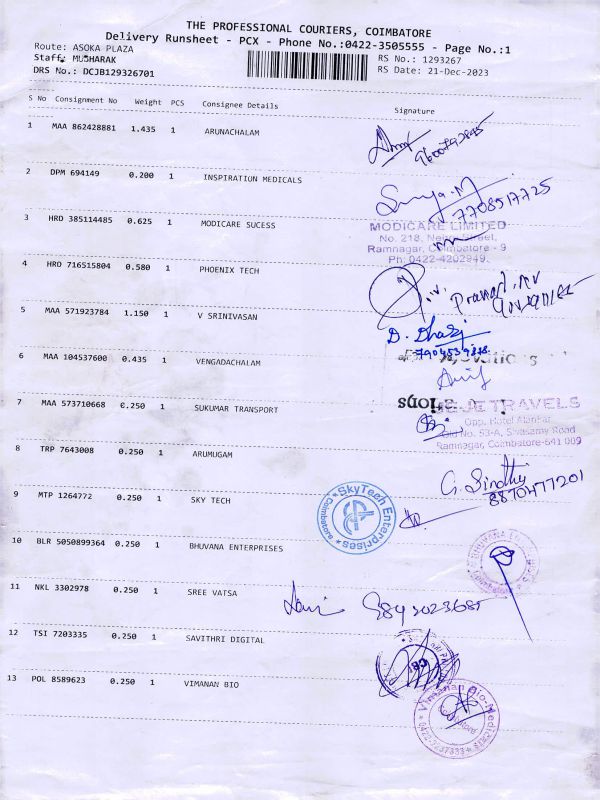 THE PROFESSIONAL COURIERS, COIMBATORE
Delivery Runsheet - PCX - Phone No.:0422-3505555 - Page No.:1
Route: ASOKA PLAZA
Staff: MUSHARAK
DRS No.: DCJB129326701
RS No.: 1293267
RS Date: 21-Dec-2023
S No Consignment No Weight PCS Consignee Details Signature
1 MAA 862428881 1.435 1 ARUNACHALAM
2 DPM 694149 0.200 1 INSPIRATION MEDICALS
7708517725
3 HRD 385114485 0.625 1 MODICARE SUCESS
MODICARE LIMITED
No. 218, Street,
Ramnagar, Coimbatore - 9
Ph: 0422-4202949
4 HRD 716515804 0.580 1 PHOENIX TECH
5 MAA 571923784 1.150 1 V SRINIVASAN
6 MAA 104537600 0.435 1 VENGADACHALAM
7 MAA 573710668 0.250 1 SUKUMAR TRANSPORT
TRAVELS
Opp. Hotel Alankar
Old No. 53-A, Sivasamy Road
Ramnagar, Coimbatore-641 009
8 TRP 7643008 0.250 1 ARUMUGAM
G. Sindhu
8870477201
9 MTP 1264772 0.250 1 SKY TECH
SkyTech Enterprises
Coimbatore
10 BLR 5050899364 0.250 1 BHUVANA ENTERPRISES
BHUVANA
11 NKL 3302978 0.250 1 SREE VATSA
12 TSI 7203335 0.250 1 SAVITHRI DIGITAL
CBE
13 POL 8589623 0.250 1 VIMANAN BIO
Vimanan Bio-Medicals